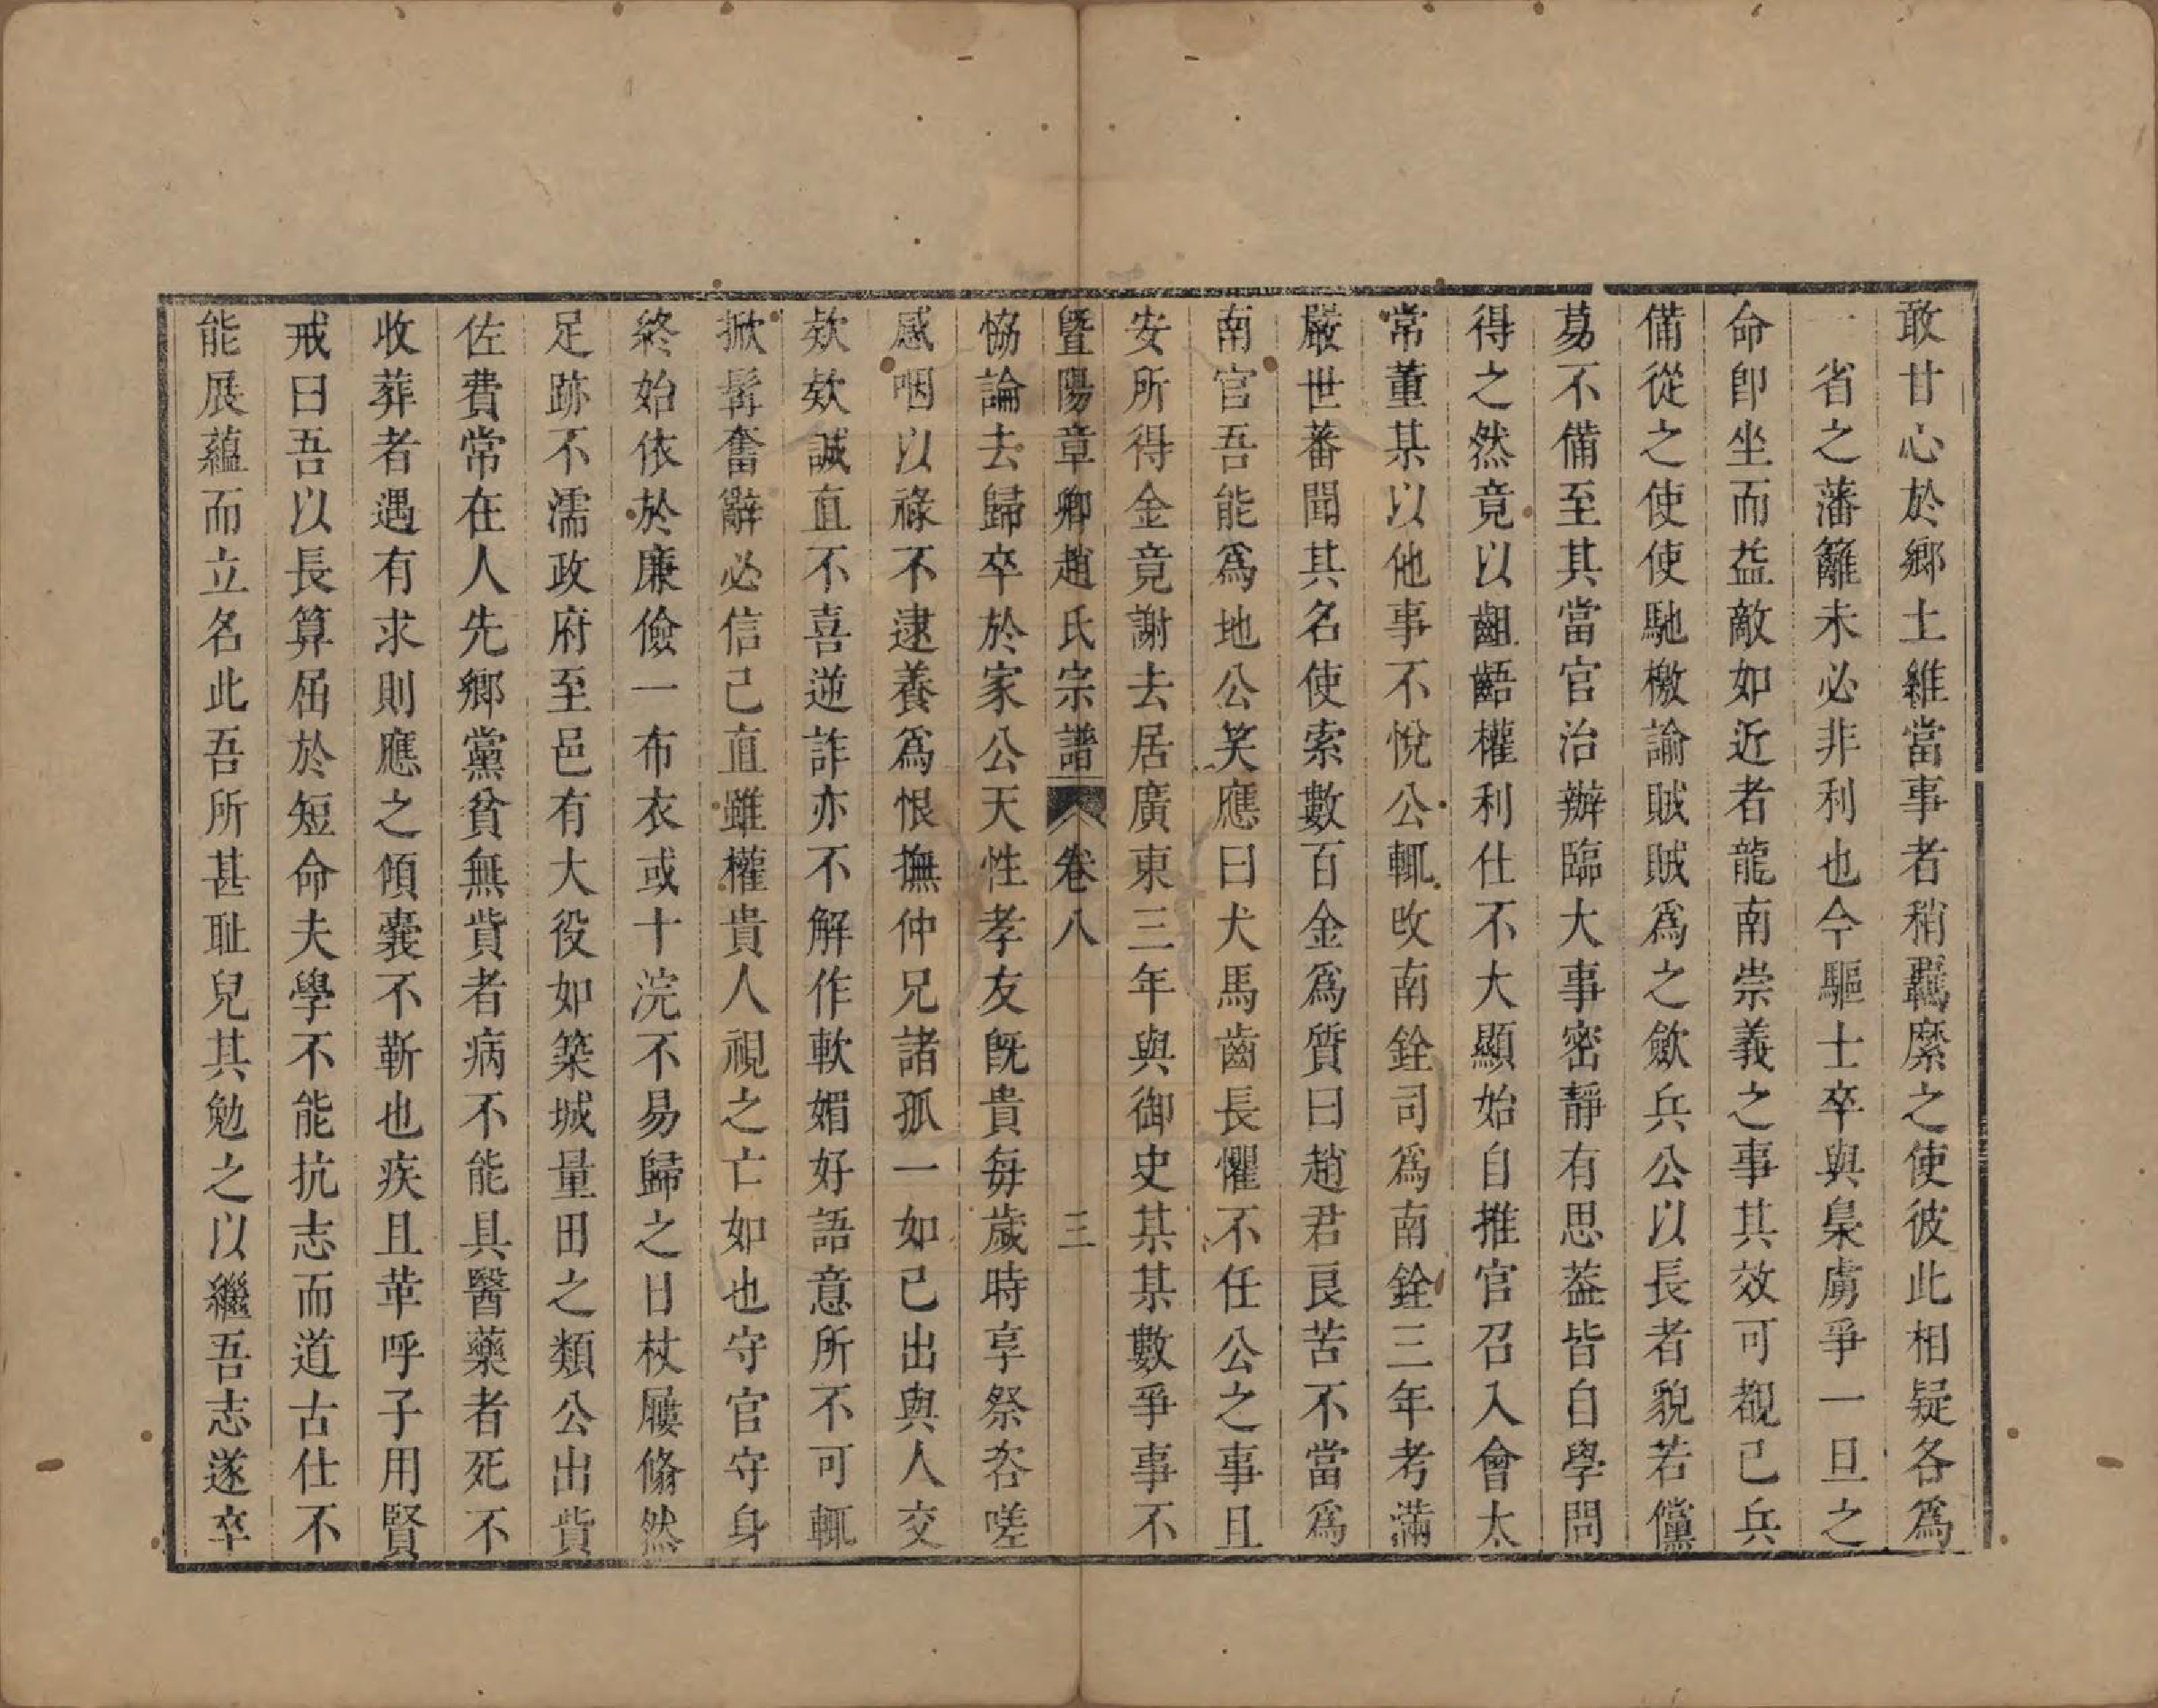 敢甘心於鄉土維當事者稍羈縻之使彼此相疑各爲
一省之藩籬未必非利也今驅士卒與梟虜爭一旦之
命卽坐而益敵如近者龍南崇義之事其效可覩已兵
備從之使使馳檄諭賊賊爲之歛兵公以長者貌若儻
葛不備至其當官治辦臨大事密靜有思葢皆自學問
得之然竟以齟齬權利仕不大顯始自推官召入會太
常董某以他事不悅公輒改南銓司爲南銓三年考滿
嚴世蕃聞其名使索數百金爲質曰趙君良苦不當爲
南官吾能爲地公笑應曰犬馬齒長懼不任公之事且
安所得金竟謝去居廣東三年與御史某某數爭事不
暨陽章卿趙氏宗譜 卷八 三
恊論去歸卒於家公天性孝友旣貴每歲時享祭咨嗟
感咽以祿不逮養爲恨撫仲兄諸孤一如已出與人交
欵欵誠直不喜逆詐亦不解作軟媚好語意所不可輒
掀髯奮辭必信己直雖權貴人視之亡如也守官守身
終始依於廉儉一布衣或十浣不易歸之日杖屨翛然
足跡不濡政府至邑有大役如築城量田之類公出貲
佐費常在人先鄉黨貧無貲者病不能具醫藥者死不
收葬者遇有求則應之傾囊不靳也疾且革呼子用賢
戒曰吾以長算屈於短命夫學不能抗志而道古仕不
能展蘊而立名此吾所甚耻兒其勉之以繼吾志遂卒